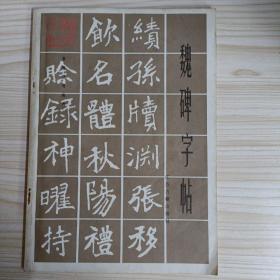 魏碑字帖
績孫牘淵張移
飲名體秋陽禮
賒錄神曜持